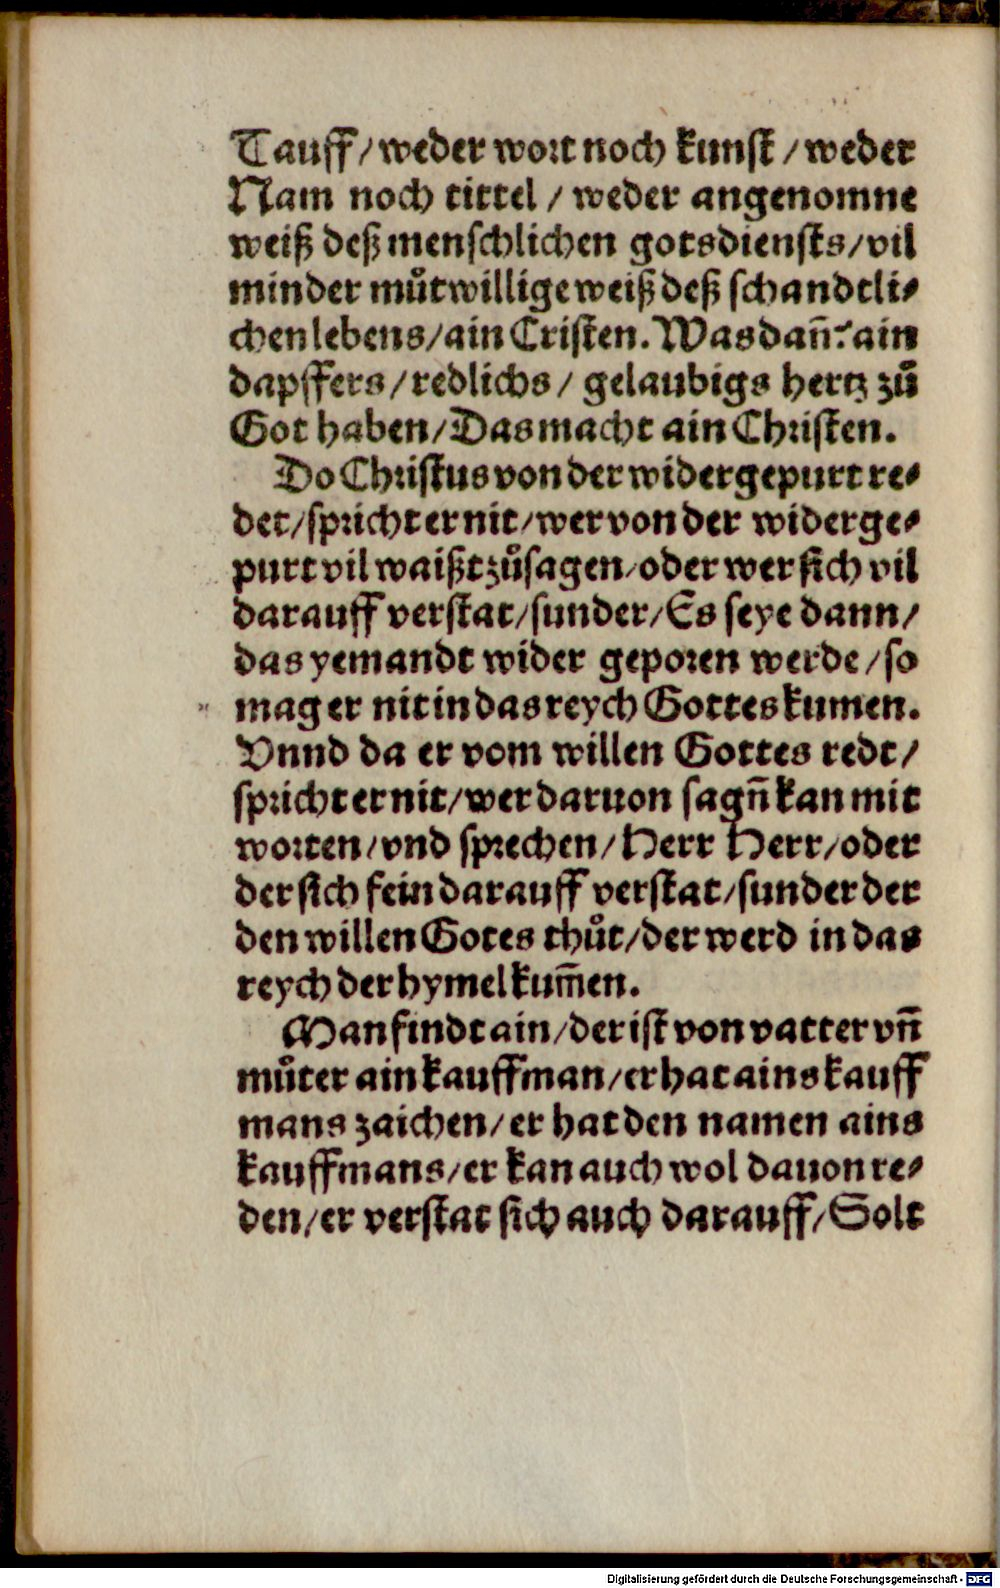 Tauff / weder wort noch kunst / weder
Nam noch tittel / weder angenomne
weiß deß menschlichen gotsdiensts / vil
minder můtwillige weiß deß schandtli⸗
chen lebens / ain Cristen. Was dañ? ain
dapffers / redlichs / gelaubigs hertz zů
Got haben / Das macht ain Christen.
Do Christus von der widergepurt re⸗
det / spricht er nit / wer von der widerge⸗
purt vil waißt zůsagen / oder wer sich vil
darauff verstat / sunder / Es seye dann /
das yemandt wider geporen werde / so
mag er nit in das reych Gottes kumen.
Vnnd da er vom willen Gottes redt /
spricht er nit / wer daruon sagñ kan mit
worten / vnd sprechen / Herr Herr / oder
der sich fein darauff verstat / sunder der
den willen Gotes thůt / der werd in das
reych der hymel kum̃en.
Man findt ain / der ist von vatter vñ
můter ain kauffman / er hat ains kauff
mans zaichen / er hat den namen ains
kauffmans / er kan auch wol dauon re⸗
den / er verstat sich auch darauff / Solt
Digitalisierung gefördert durch die Deutsche Forschungsgemeinschaft - DFG